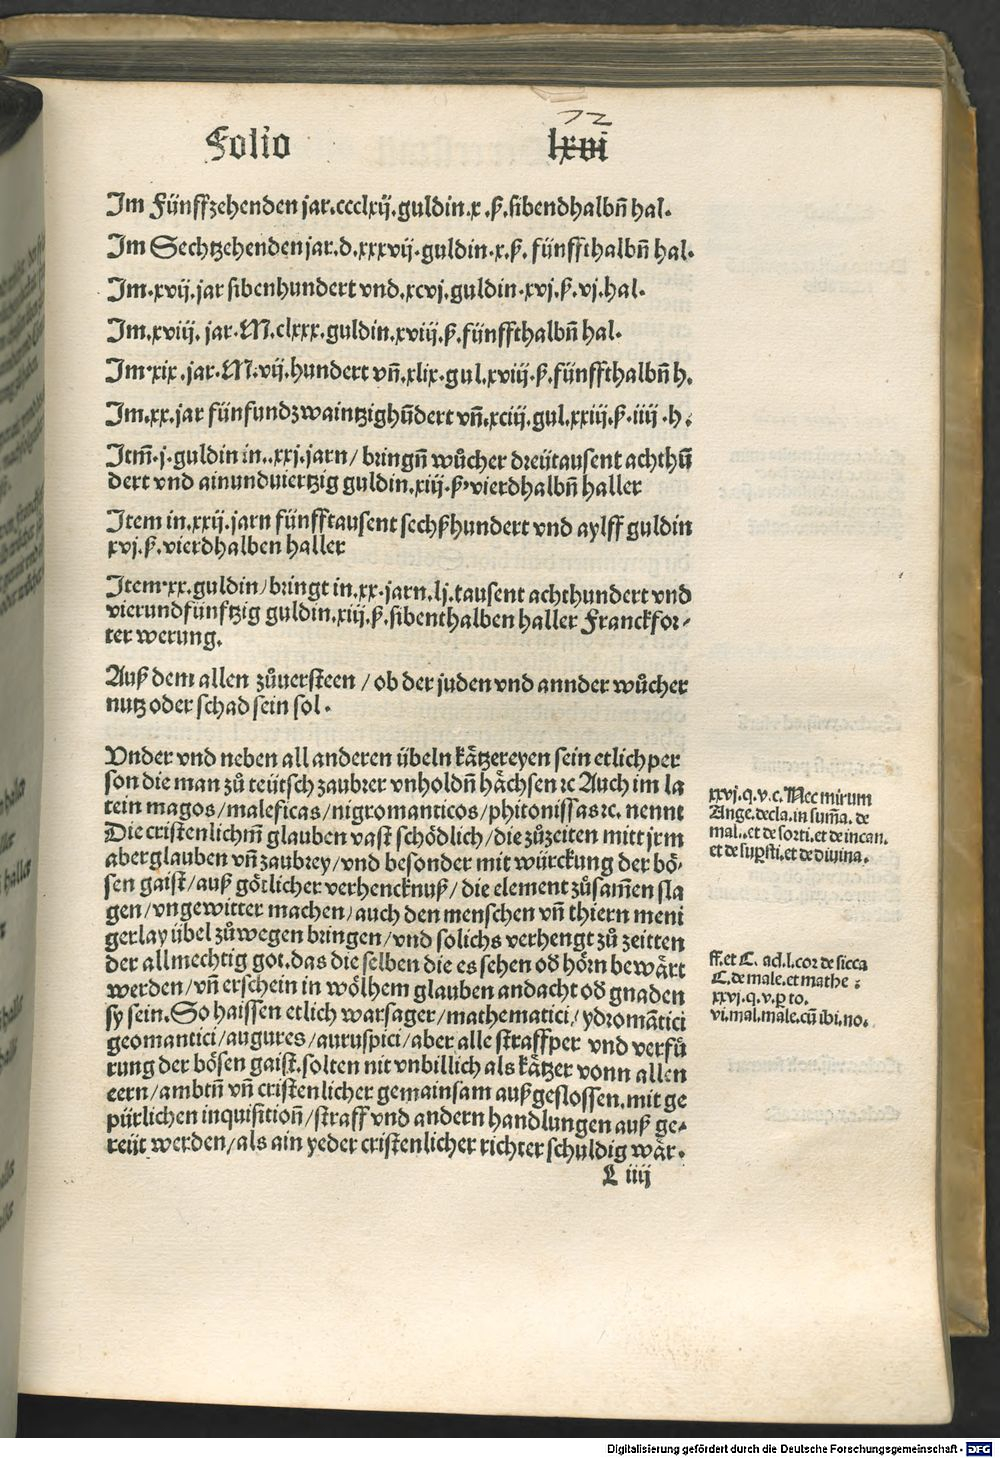 72
Folio lxvi
Im Fünffzehenden jar.ccclxij.guldin.x.ß.sibendhalbñ hal.
Im Sechtzehenden jar.d.xxxvij.guldin.x.ß.fünffthalbñ hal.
Im.xvij.jar sibenhundert vnd.xcvj.guldin.xvj.ß.vj.hal.
Im.xviij.jar.M.clxxx.guldin.xviij.ß.fünffthalbñ hal.
Im.xix.jar.M.vij.hundert vñ.xlix.gul.xviij.ß.fünffthalbñ h.
Im.xx.jar fünfundzwaintzighūdert vñ.xciij.gul.xxiij.ß.iiij.h.
Itm̄.j.guldin in..xxj.jarn/ bringñ wůcher dreütausent achthū
dert vnd ainunduiertzig guldin.xiij.ß.vierdhalbñ haller
Item in.xxij.jarn fünfftausent sechßhundert vnd aylff guldin
xvj.ß.vierdhalben haller
Item.xx.guldin/bringt in.xx.jarn.lj.tausent achthundert vnd
vierundfünftzig guldin.xiij.ß.sibenthalben haller Franckfor⸗
ter werung.
Auß dem allen zůuersteen/ob der juden vnd annder wůcher
nutz oder schad sein sol.
Vnder vnd neben all anderen übeln kätzereyen sein etlich per
son die man zů teütsch zaubrer vnholdñ hächsen ꝛc Auch im la
tein magos/maleficas/nigromanticos/phitonissas ꝛc. nennt
Die cristenlichm̄ glauben vast schödlich/die zůzeiten mitt jrm
aberglauben vñ zaubrey/vnd besonder mit würckung der bö⸗
sen gaist/auß götlicher verhencknuß/die element zůsam̄en sla
gen/vngewitter machen/auch den menschen vñ thiern meni
gerlay übel zůwegen bringen/vnd solichs verhengt zů zeitten
der allmechtig got.das die selben die es sehen oď hörn bewärt
werden/vñ erschein in wölhem glauben andacht oď gnaden
sy sein.So haissen etlich warsager/mathematici/ydromātici
geomantici/augures/auruspici/aber alle straffper vnd verfů
rung der bösen gaist.solten nit vnbillich als kätzer vonn allen
eern/ambtñ vñ cristenlicher gemainsam außgeslossen.mit ge
pürlichen inquisitionñ/straff vnd andern handlungen auß ge⸗
reüt werden/als ain yeder cristenlicher richter schuldig wär.
L iiij
xxvj.q.v.c.Nec mirum
Ange.decla.in sum̄a.de
mal..et de sorti.et de incan.
et de suꝑsti.et de divina.
ff.et C. ad.l.cor de sicca
C.de male.et mathe:
xxvj.q.v.ꝑ to.
vi.mal.male.cū ibi.no.
Digitalisierung gefördert durch die Deutsche Forschungsgemeinschaft - DFG